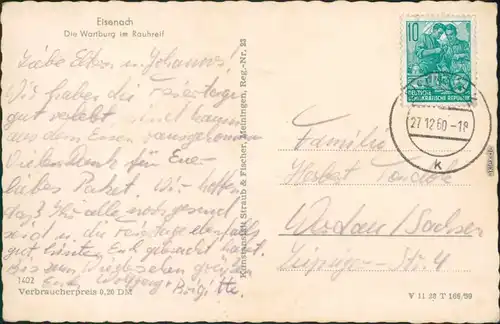 Eisenach
Die Wartburg im Rauhreif
Liebe Eltern u. Johannes!
Wir haben die Feiertage
gut verlebt und kaum
aus dem Essen rausgekommen
Vielen Dank für Eue-
liebes Paket. Wir hoffen
daß Ihr alle noch gesund
seid u. die Feiertage ebenfalls
gut hinter Euch gebracht habt.
Bis zum Wiedersehen grüßen
Euch Wolfgang + Brigitte.
1402
Verbraucherpreis 0,20 DM
Kunstanstalt Straub & Fischer, Meiningen, Reg.-Nr. 23
10
DEUTSCHE
DEMOKRATISCHE REPUBLIK
27.12.60-18
k
Familie
Herbert
Werdau/Sachsen
Leipziger-Str. 4
V 11 28 T 166/59